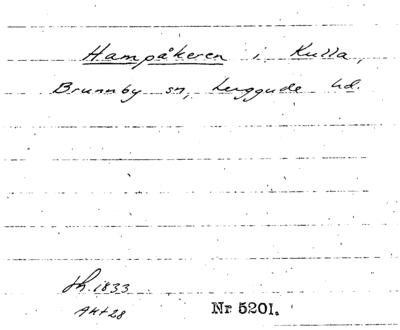 Hampåkeren i Kulla,
Brunnby sn, Luggude hd.
sh. 1833
Akt 28
Nr 5201.